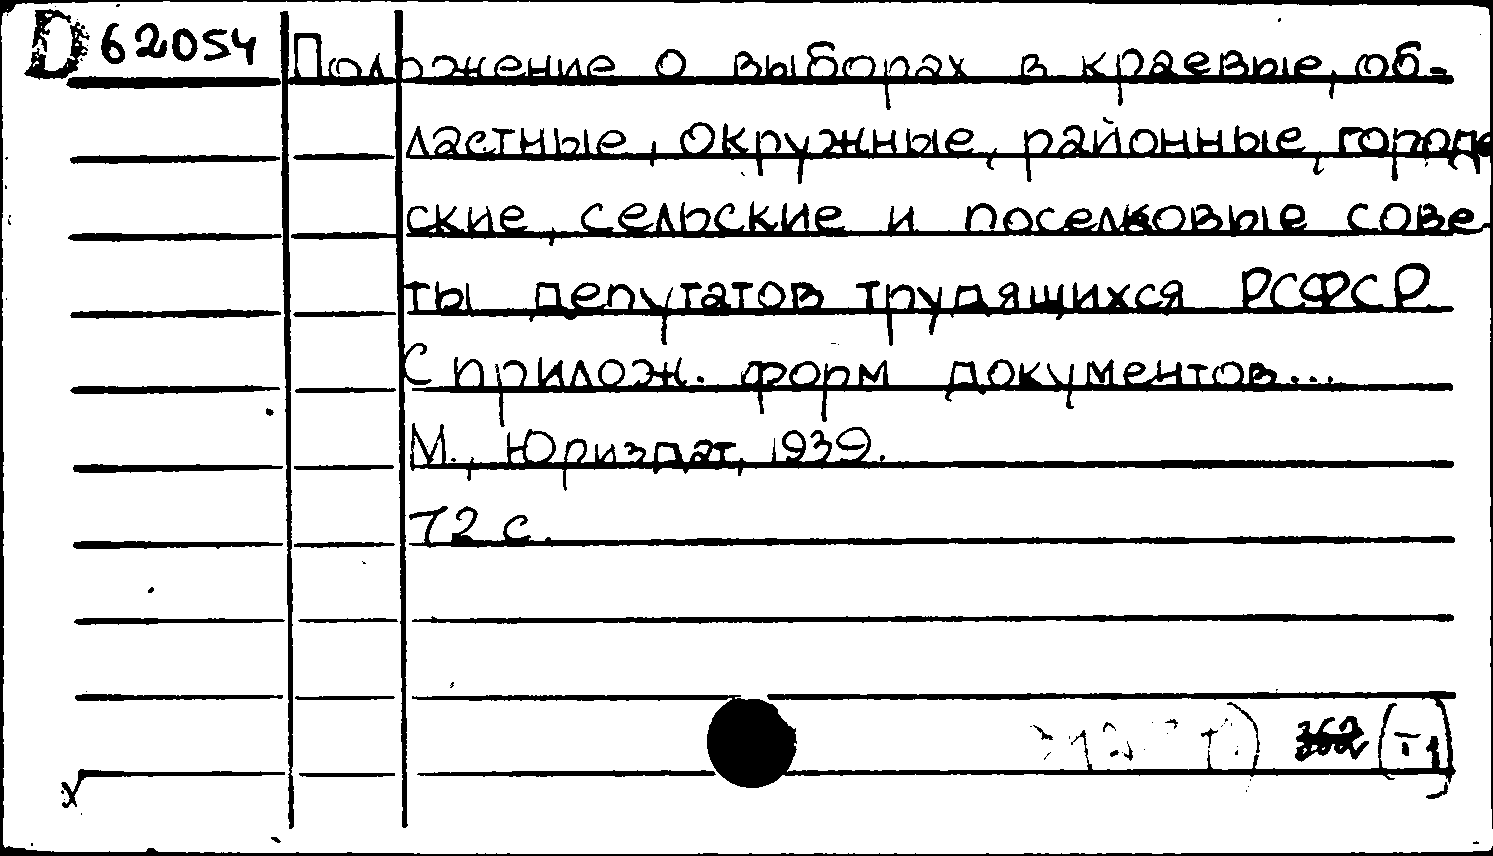 D 62054 Положение о выборах в краевые, об-
ластные, окружные, районные, городс
ские, сельские и поселковые сове-
ты депутатов трудящихся РСФСР
С прилож. форм документов...
М., Юриздат, 1939.
72 с.